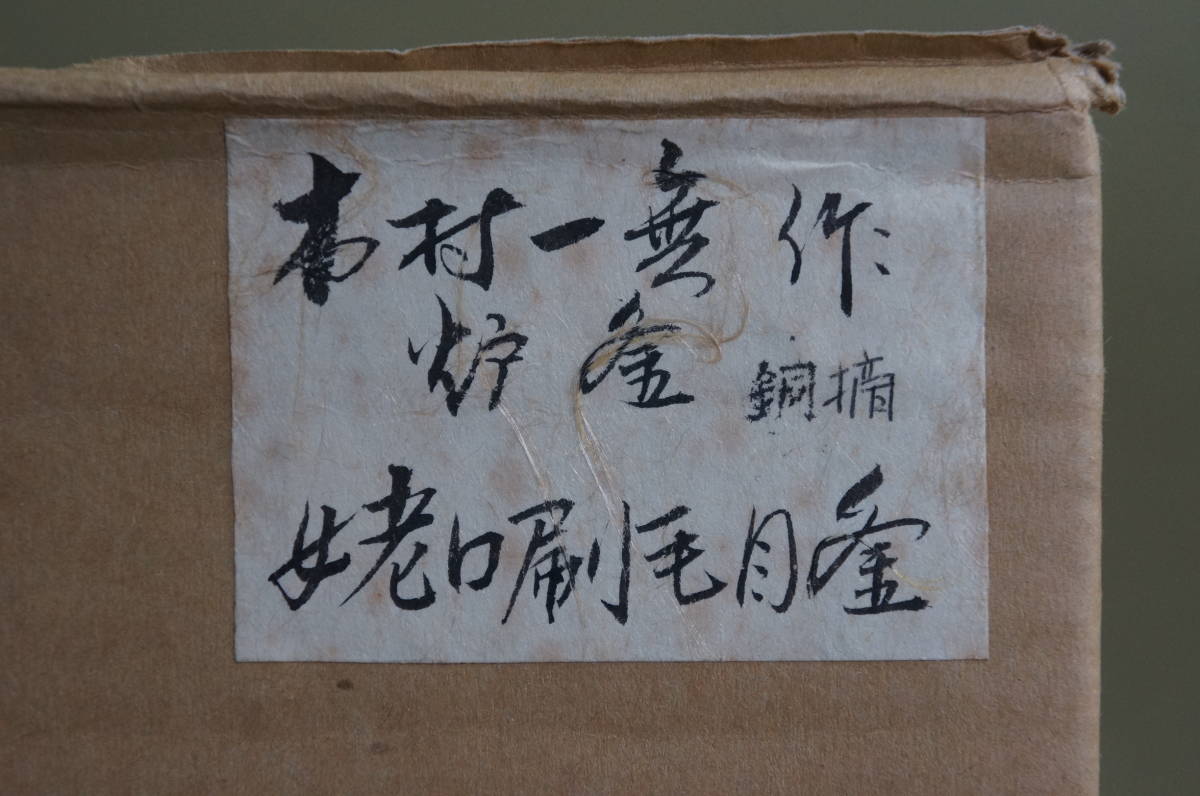 村一無 作
炉 釜 銅摘
姥口刷毛目釜